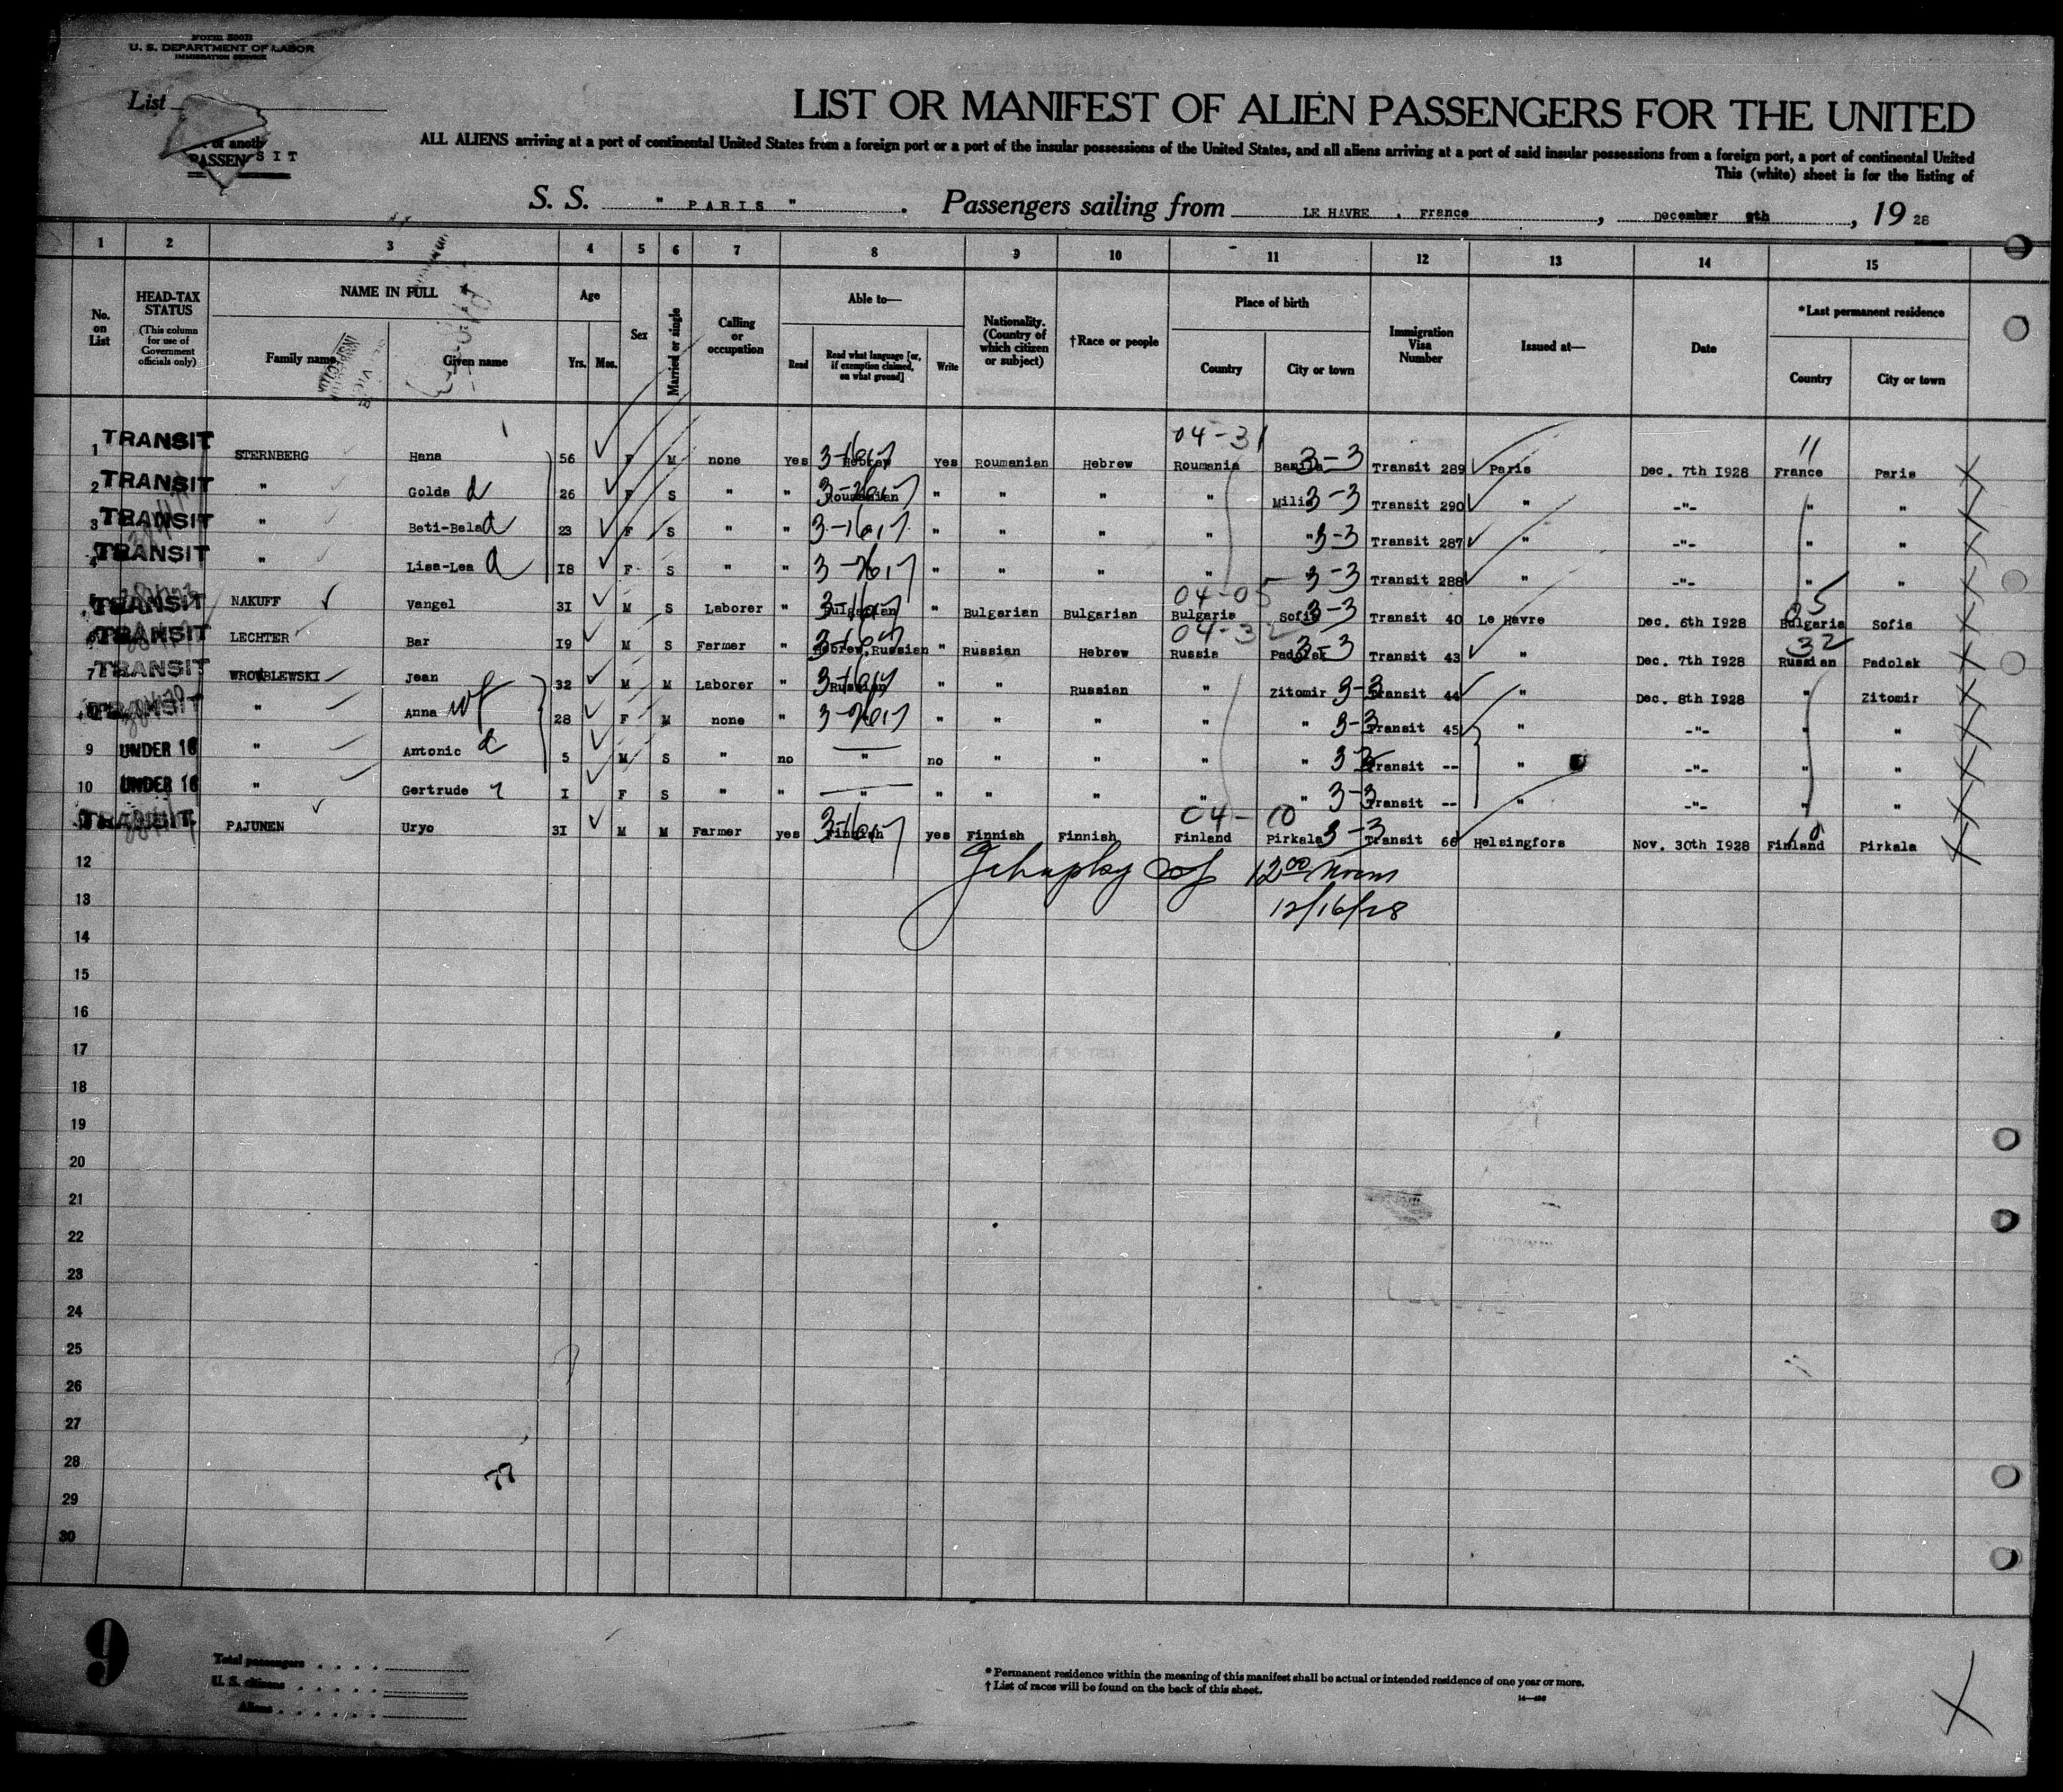 Form 500B
U. S. DEPARTMENT OF LABOR
IMMIGRATION SERVICE
List
LIST OR MANIFEST OF ALIEN PASSENGERS FOR THE UNITED
ALL ALIENS arriving at a port of continental United States from a foreign port or a port of the insular possessions of the United States, and all aliens arriving at a port of said insular possessions from a foreign port, a port of continental United
This (white) sheet is for the listing of
PASSEN S I T
S. S. " PARIS " . Passengers sailing from LE HAVRE , France , December 8th , 19 28
1 2 3 4 5 6 7 8 9 10 11 12 13 14 15
No. on List
HEAD-TAX STATUS
(This column for use of Government officials only)
NAME IN FULL
Family name
Given name
Age
Yrs. Mos.
Sex
Married or single
Calling or occupation
Able to—
Read
Read what language [or, if exemption claimed, on what ground]
Write
Nationality. (Country of which citizen or subject)
†Race or people
Place of birth
Country
City or town
Immigration Visa Number
Issued at—
Date
*Last permanent residence
Country
City or town
04-31 11
1 TRANSIT STERNBERG Hana 56 F M none yes Hebrew yes Roumanian Hebrew Roumania 3-3 Transit 289 Paris Dec. 7th I928 France Paris
2 TRANSIT " Golda d 26 F S " " Roumanian " " " " Mili 3-3 Transit 290 " -"- " "
3 TRANSIT " Beti-Bela d 23 F S " " " " " " " 3-3 Transit 287 " -"- " "
4 TRANSIT " Lisa-Lea d I8 F S " " " " " " 3-3 Transit 288 " -"- " "
04-05 05
5 TRANSIT NAKUFF Vangel 3I M S Laborer " Bulgarian " Bulgarian Bulgarian Bulgaria Sofia 3-3 Transit 40 Le Havre Dec. 6th I928 Bulgaria Sofia
04-32 32
6 TRANSIT LECHTER Bar I9 M S Farmer " Hebrew,Russian " Russian Hebrew Russia Padolsk 3-3 Transit 43 " Dec. 7th I928 Russian Padolak
7 TRANSIT WROWBLEWSKI Jean 32 M M Laborer " Russian " " Russian " Zitomir 3-3 Transit 44 " Dec. 8th I928 " Zitomir
TRANSIT " Anna wf 28 F M none " " " " " " 3-3 Transit 45 " -"- " "
9 UNDER 16 " Antonic d 5 M S " no " no " " " " 3 3 Transit -- " -"- " "
10 UNDER 16 " Gertrude I F S " " " " " " " " 3-3 Transit -- " -"- " "
04-10 10
TRANSIT PAJUNEN Uryo 3I M M Farmer yes Finnish yes Finnish Finnish Finland Pirkala 3-3 Transit 66 Helsingfors Nov. 30th I928 Finland Pirkala
12
12 00 Noon
13
12/16/28
14
15
16
17
18
19
20
21
22
23
24
25
26
27
28
29
30
9
Total passengers
U. S. citizens
Aliens
* Permanent residence within the meaning of this manifest shall be actual or intended residence of one year or more.
† List of races will be found on the back of this sheet.